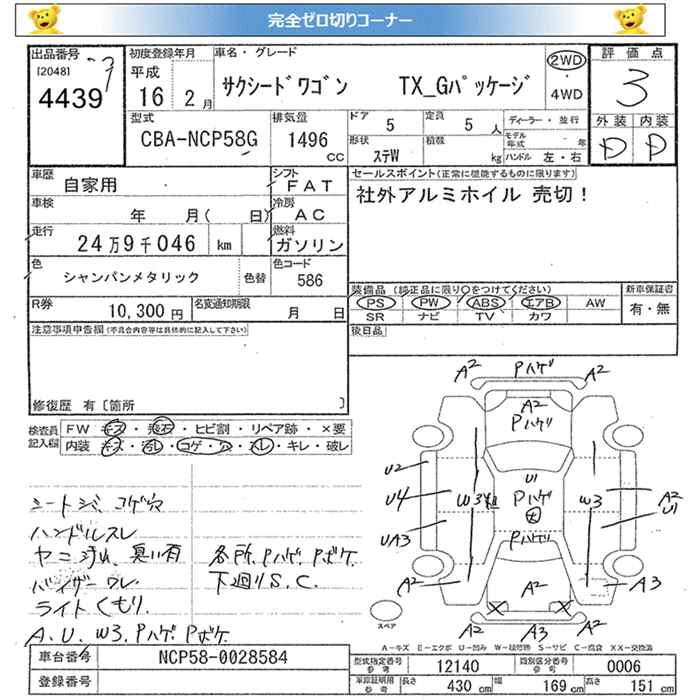 完全ゼロ切りコーナー
出品番号
[2048]
4439
初度登録年月
平成
16 2月
車名・グレード
サクシードワゴン TX_Gパッケージ
2WD
4WD
評価点
3
外装 内装
D D
型式
CBA-NCP58G
排気量
1496
CC
ドア
5
定員
5 人
形状
ステW
積載
kg
ディーラー・並行
モデル年式 年
ハンドル 左・右
車歴
自家用
シフト
FAT
車検
年 月( 日)
冷房
AC
走行
24万9千046 km
燃料
ガソリン
色
シャンパンメタリック
色替
色コード
586
R券
10,300円
名変通知期限
月 日
セールスポイント(正常に機能するものに限ります)
社外アルミホイル 売切!
装備品(純正品に限り○をつけてください)
PS PW ABS エアB AW
SR ナビ TV カワ
新車保証書
有・無
後日品
注意事項申告欄(不具合内容等は具体的に記入して下さい)
修復歴 有〔箇所 〕
検査員記入欄
FW キズ・飛石・ヒビ割・リペア跡・×要
内装 キズ・汚レ・コゲ・穴・スレ・キレ・破レ
シートシミ、コゲ穴
ハンドルスレ
ヤニ汚れ、臭い有
バイザーワレ
ライトくもり.
A.U.W3.Pハゲ.Pボケ
各所.Pハゲ.Pボケ.
下廻りS.C.
A2 Pハゲ A2
A2
Pハゲ
U2
U4
UA3
W3
U1
Pハゲ
大
Pハゲ
W3
A2
U1
A2
A2
A3
A2 A3 A2
スペア
A-キズ E-エクボ U-凹み W-補修跡 S-サビ C-腐食 XX-交換済
車台番号
NCP58-0028584
登録番号
型式指定番号
参考
12140
類別区分番号
参考
0006
車庫証明用
参考
長さ
430 cm
幅
169 cm
高さ
151 cm